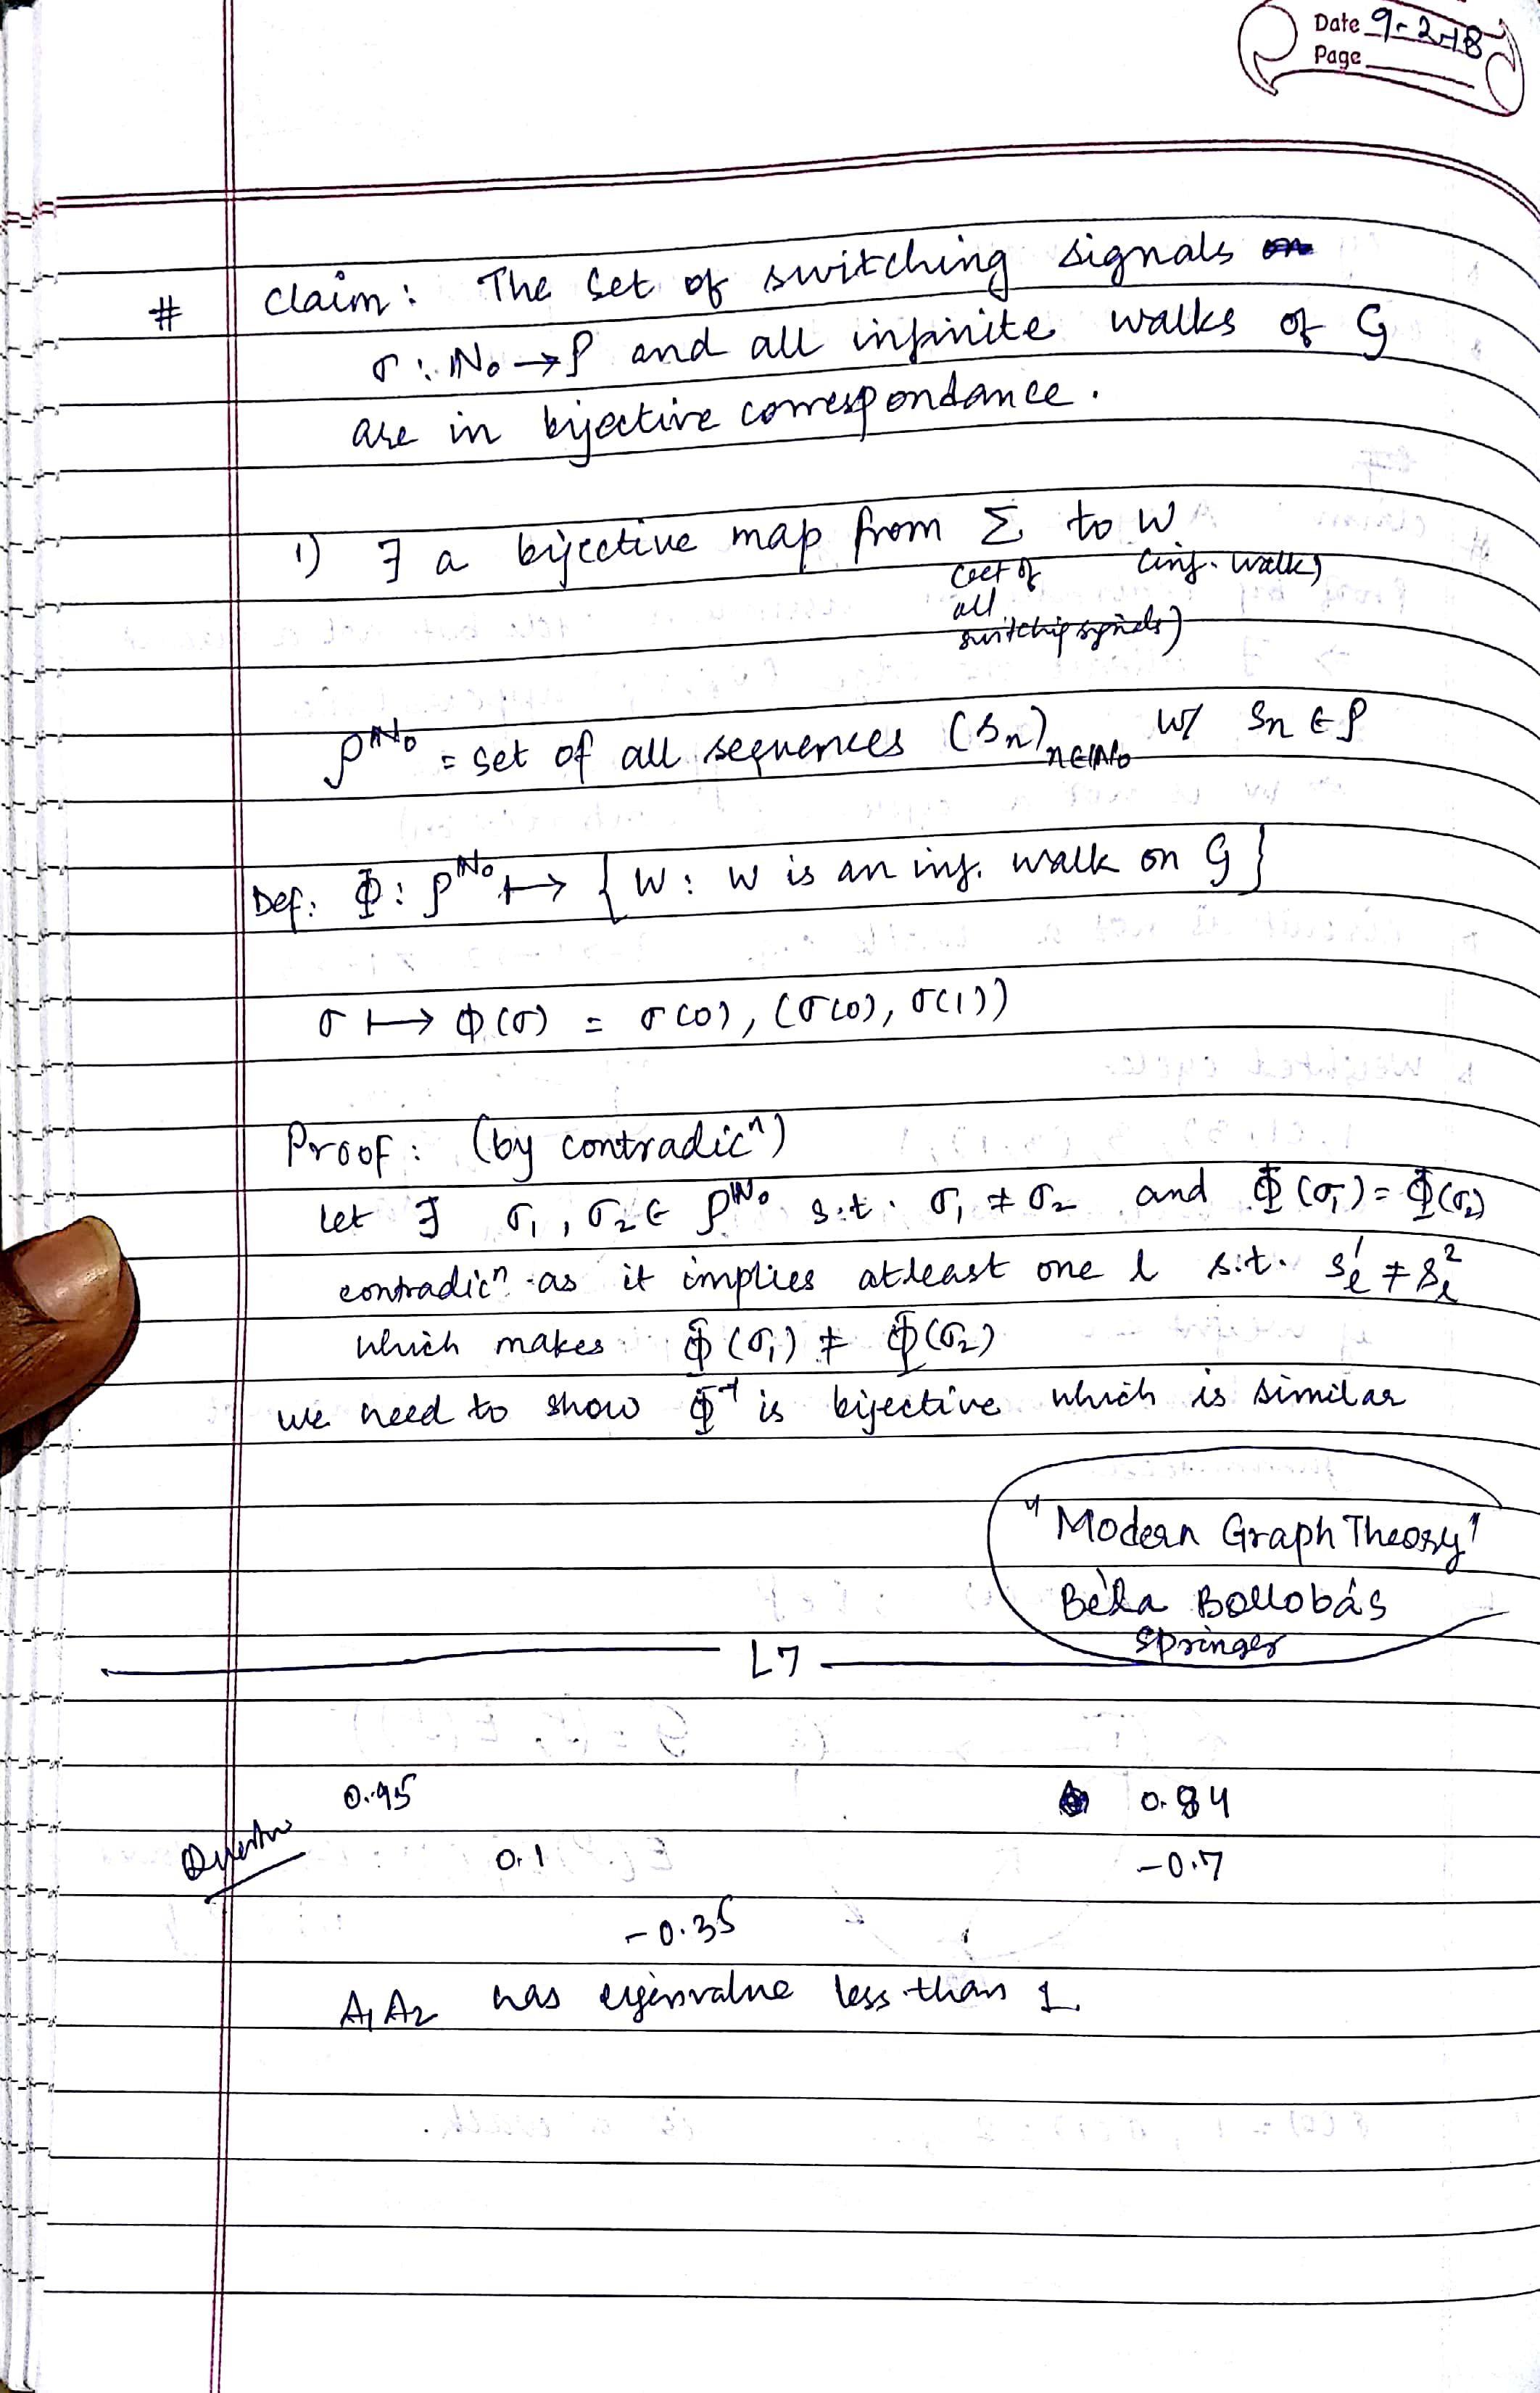 Date 9-2-18
Page
# Claim: The set of switching signals
σ: ℕ₀ → P and all infinite walks of G
are in bijective correspondance.
1) ∃ a bijective map from Σ to W
(set of (inf. walks)
all
switching signals)
P^ℕ₀ = set of all sequences (sₙ)ₙ∈ℕ₀ w/ sₙ ∈ P
Def: Φ: P^ℕ₀ ↦ { W: W is an inf. walk on G }
σ ↦ Φ(σ) = σ(0), (σ(0), σ(1))
Proof: (by contradicⁿ)
let ∃ σ₁, σ₂ ∈ P^ℕ₀ s.t. σ₁ ≠ σ₂ and Φ(σ₁) = Φ(σ₂)
contradicⁿ as it implies atleast one l s.t. s_l^1 ≠ s_l^2
which makes Φ(σ₁) ≠ Φ(σ₂)
we need to show Φ⁻¹ is bijective which is similar
"Modern Graph Theory"
Bèla Bollobás
Springer
L7
0.95 0.84
0.1 -0.7
-0.35
A₁A₂ has eigenvalue less than 1.